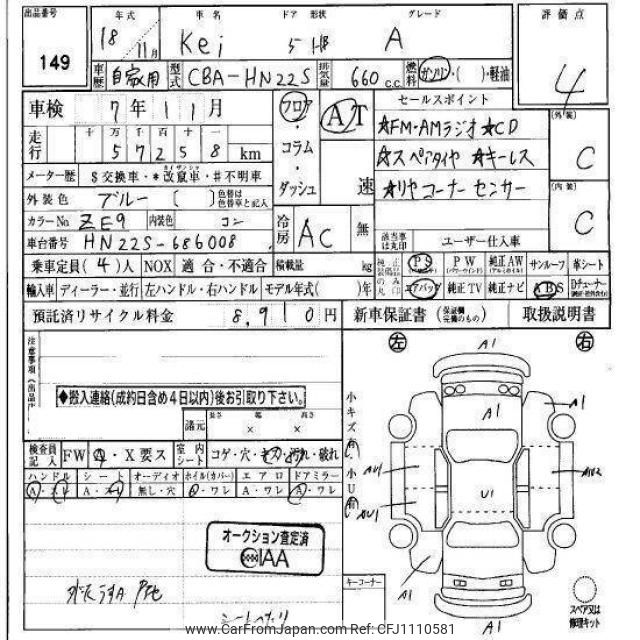 出品番号 年式 車名 ドア 形状 グレード 評価点
149 18 11月 Kei 5 HB A 4
車歴 自家用 型式 CBA-HN22S 排気量 660 c.c. 燃料 ガソリン・( )・軽油
車検 7年11月 フロア・コラム・ダッシュ AT 速 セールスポイント (外装)
走行 十 万 千 百 十 一 ☆FM・AMラジオ ☆CD C
57258 km ☆スペアタイヤ ☆キーレス
メーター歴 $交換車・*改竄車・#不明車 ☆リヤコーナーセンサー (内装)
外装色 ブルー ( ) 色替は色替車と記入 C
カラーNo ZE9 内装色 コン 冷房 AC 無 該当事は丸印 ユーザー仕入車
車台番号 HN22S-686008
乗車定員(4)人 NOX 適合・不適合 積載量 kg 純正装備品のみ丸印 PS PW 純正AW サンルーフ 革シート
輸入車 ディーラー・並行 左ハンドル・右ハンドル モデル年式( )年 エアバッグ 純正TV 純正ナビ ABS Dチューナー
預託済リサイクル料金 8,910円 新車保証書 (保証欄完備のもの) 取扱説明書
注意事項
左 A1 右
◆搬入連絡(成約日含め4日以内)後お引取り下さい。
諸元 長さ 幅 高さ × ×
小キズ 小U
A1 A1
検査員記入 FW A・X要ス 室内シート コゲ・穴・キズ・汚れ・破れ
AU1 U1
ハンドル シート オーディオ ホイル(カバー) エアロ ドアミラー
A・スレ A・スレ 無し・穴 A・ワレ A・ワレ A・ワレ
オークション査定済
IAA
A1
キーコーナー
スペア又は修理キット
A1
www.CarFromJapan.com Ref:CFJ1110581